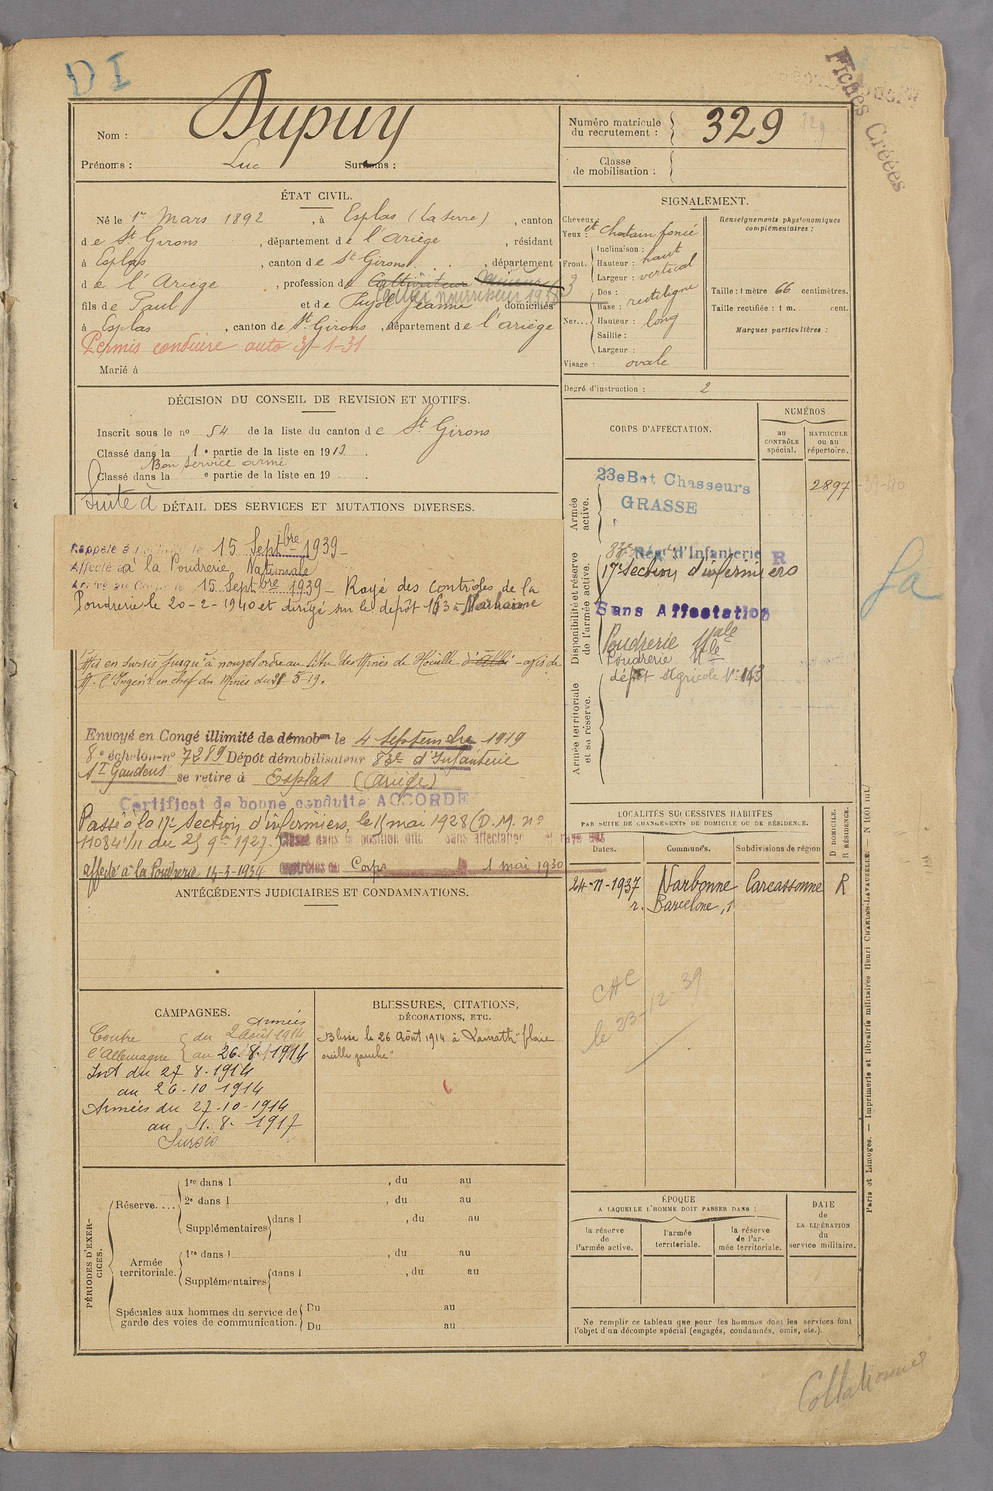 DI
Fiches Créées
Nom : Dupuy
Prénoms : Luc Surnoms :
Numéro matricule du recrutement : 329
Classe de mobilisation :
ÉTAT CIVIL.
Né le 1er Mars 1892, à Esplas (La Serre), canton
de St Girons, département de l'Ariège, résidant
à Esplas, canton de St Girons, département
de l'Ariège, profession de Cultivateur
fils de Paul et de Pujol Jeanne domiciliés
à Esplas, canton de St Girons, département de l'ariège
Permis conduire auto 3-1-31
Marié à
SIGNALEMENT.
Cheveux : et
Yeux : Chatain foncé
Front. Inclinaison : haut
Hauteur : vertical
Largeur :
Nez... Dos : rectiligne
Base :
Hauteur : long
Saillie :
Largeur :
Visage : ovale
Renseignements physionomiques complémentaires :
Taille : 1 mètre 66 centimètres.
Taille rectifiée : 1 m. cent.
Marques particulières :
Degré d'instruction : 2
DÉCISION DU CONSEIL DE REVISION ET MOTIFS.
Inscrit sous le no 54 de la liste du canton de St Girons
Classé dans la 1e partie de la liste en 1913.
Bon Service armé
Classé dans la e partie de la liste en 19 .
CORPS D'AFFECTATION.
NUMÉROS
au CONTRÔLE spécial.
MATRICULE ou au répertoire.
Armée active.
23e Bat Chasseurs
GRASSE
2897
Disponibilité et réserve de l'armée active.
83e Rég. d'Infanterie R
17e Section d'infirmiers
Sans Affectation
Poudrerie Nale
Poudrerie Nle
dépôt Agricole No 163
Armée territoriale et sa réserve.
Suite à DÉTAIL DES SERVICES ET MUTATIONS DIVERSES.
Rappelé à le 15 Septbre 1939 -
Affecté à la Poudrerie Nationale
15 Septbre 1939 - Rayé des Contrôles de la
Poudrerie le 20-2-1940 et dirigé sur le dépôt 163 à Narbonne
Mis en Sursis jusqu'à nouvel ordre au titre des Mines de Houille d'Albi - avis de
M. l'Ingénr en chef des Mines du 21-5-19.
Envoyé en Congé illimité de démobon le 4 Septembre 1919
8e échelon no 7289 Dépôt démobilisateur 83e d'Infanterie
St Gaudens se retire à Esplas (Ariège)
Certificat de bonne conduite ACCORDÉ
Passé à la 17e Section d'infirmiers, le 11 mai 1928 (D. M. no
11084 1/11 du 25 9bre 1927.)
Classé dans la position dite sans affectation et rayé des
contrôles du Corps le 1 mai 1930
affecté à la Poudrerie 14-3-1934
ANTÉCÉDENTS JUDICIAIRES ET CONDAMNATIONS.
LOCALITÉS SUCCESSIVES HABITÉES
PAR SUITE DE CHANGEMENTS DE DOMICILE OU DE RÉSIDENCE.
Dates. Communes. Subdivisions de région D DOMICILE. R RÉSIDENCE.
24-11-1937 Narbonne Carcassonne R
r. Barcelone, 1
le 23-12-39
CAMPAGNES.
Contre l'Allemagne
Armées
du 2 août 1914
au 26-8-1914
Int du 27 8-1914
au 26-10 1914
Armées du 27-10-1914
au 1-8-1917
Sursis
BLESSURES, CITATIONS,
DÉCORATIONS, ETC.
Blessé le 26 Août 1914 à "plaie
oreille gauche"
PÉRIODES D'EXERCICES.
Réserve....
1re dans l , du au
2e dans l , du au
Supplémentaires dans l , du au
Armée territoriale.
1re dans l , du au
Supplémentaires dans l , du au
Spéciales aux hommes du service de garde des voies de communication.
Du au
Du au
ÉPOQUE
A LAQUELLE L'HOMME DOIT PASSER DANS :
la réserve de l'armée active.
l'armée territoriale.
la réserve de l'armée territoriale.
DATE de LA LIBÉRATION du service militaire.
Ne remplir ce tableau que pour les hommes dont les services font
l'objet d'un décompte spécial (engagés, condamnés, omis, etc.).
Paris et Limoges. — Imprimerie et librairie militaires Henri CHARLES-LAVAUZELLE.
Collationné